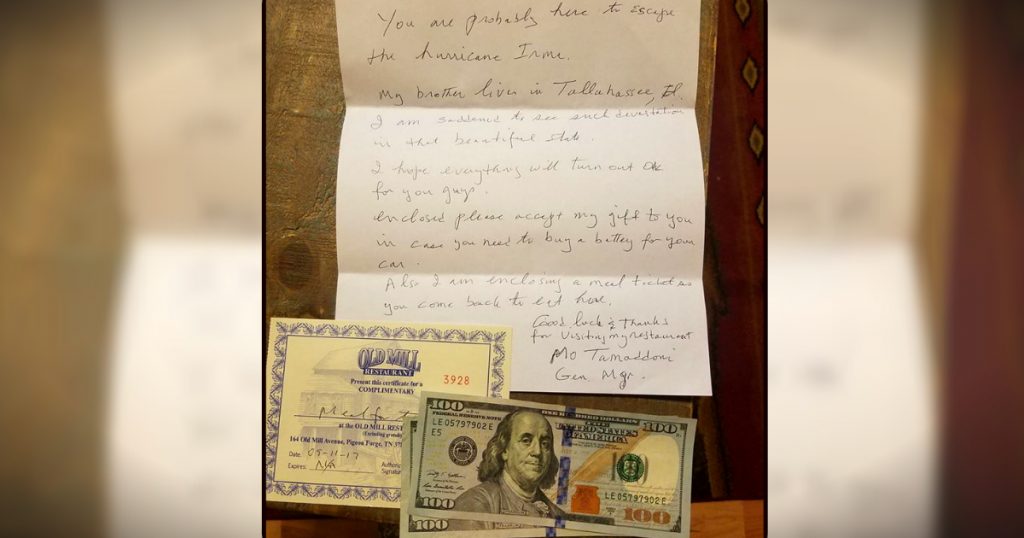 You are probably here to escape
the hurricane Irma.
My brother lives in Tallahassee, Fl.
I am saddened to see such devastation
in that beautiful state.
I hope everything will turn out ok
for you guys.
enclosed please accept my gift to you
in case you need to buy a battery for your
car.
Also I am enclosing a meal ticket so
you come back to eat here.
Good luck & thanks
for visiting my restaurant
Mo Tamaddoni
Gen. Mgr.
OLD MILL
RESTAURANT
3928
Present this certificate for a
COMPLIMENTARY
Meal for
at the OLD MILL REST
(Excluding
164 Old Mill Avenue, Pigeon Forge, TN
Date: 09-11-17
Expires: N/A
Signature
100
FEDERAL RESERVE NOTE
LE 05797902 E
E5
THE
UNITED STATES
OF AMERICA
100
LE 05797902 E
100
100
100